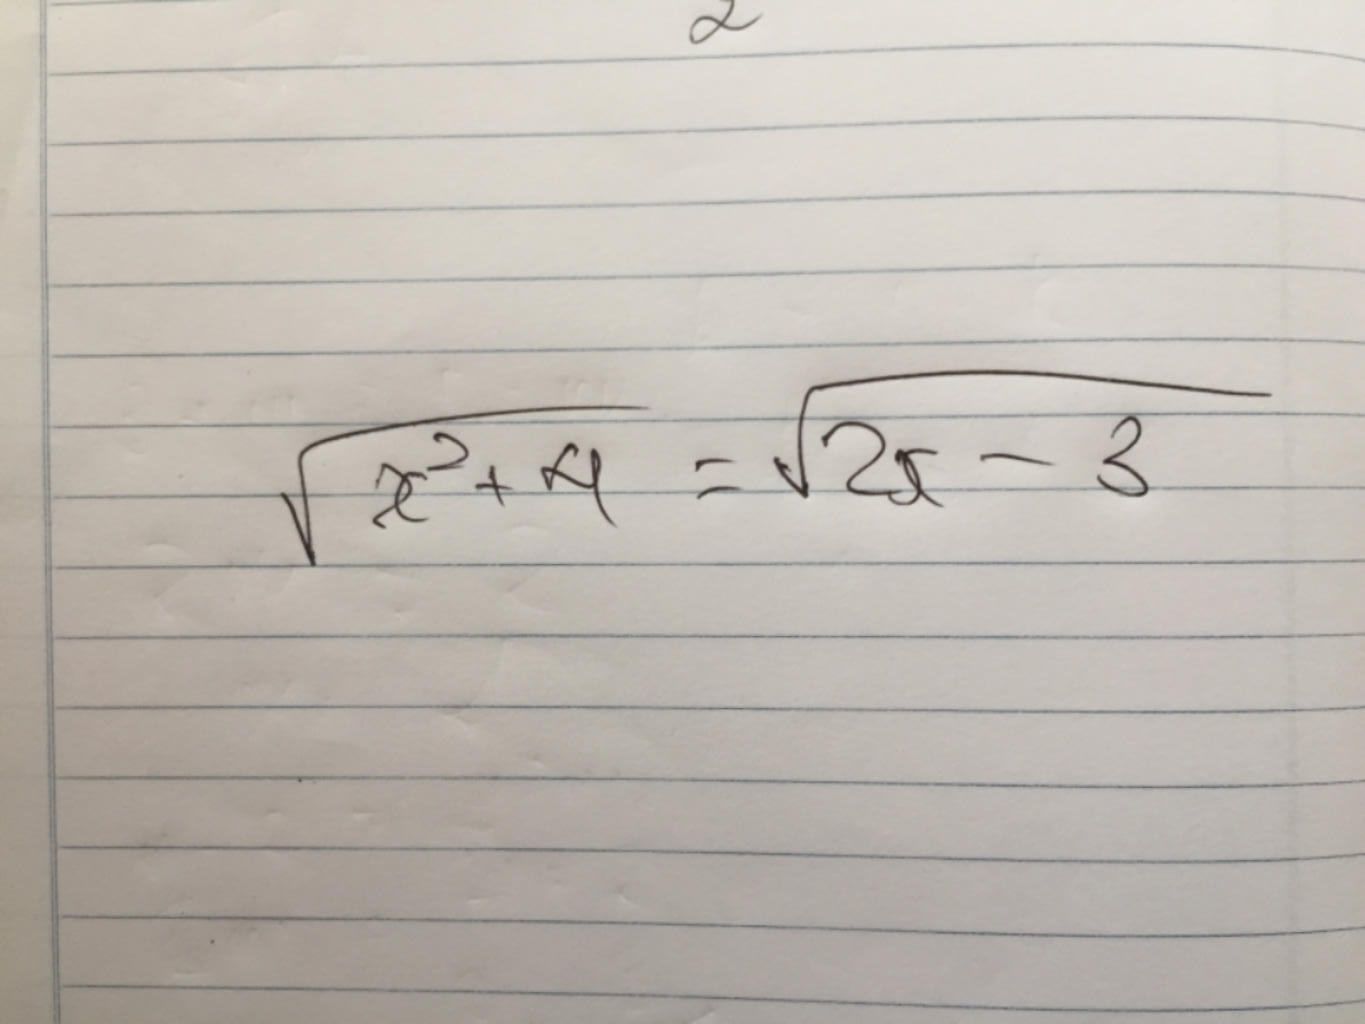 2
√x²+4 = √2x - 3